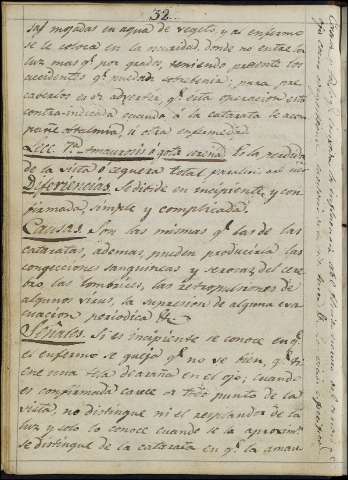 32.
sas mojadas en agua de vegeto, y al enfermo
se le coloca en la oscuridad donde no entre la
luz mas q.e por grados, teniendo presente los
accidentes q.e puedan sobrebenir; para pre
caberlos es de advertir, q.e esta operacion esta
contra-indicada cuando á la catarata le acom
pañe oftalmia, ú otra enfermedad.
Lecc. Amaurosis ó gota serena. Es la perdida
de la vista ó ceguera total
Diferiencias. Se divide en incipiente, y con
firmada, simple y complicada.
Causas. Son las mismas q.e las de las
cataratas, ademas, pueden producirla las
congecciones sanguineas y serosas, del cere
bro las lombrices, las retropulsiones de
algunos virus, la supresion de alguna eva
cuacion periodica &c.
Señales. Si es incipiente se conoce en q.e
el enfermo se queja q.e no ve bien, q.e ti
ene una tela de araña en el ojo; cuando
es confirmada carece de todo punto de la
vista, no distingue ni el resplandor de la
luz y solo lo conoce cuando se le aproxim.a
se distingue de la catarata en q.e la amau